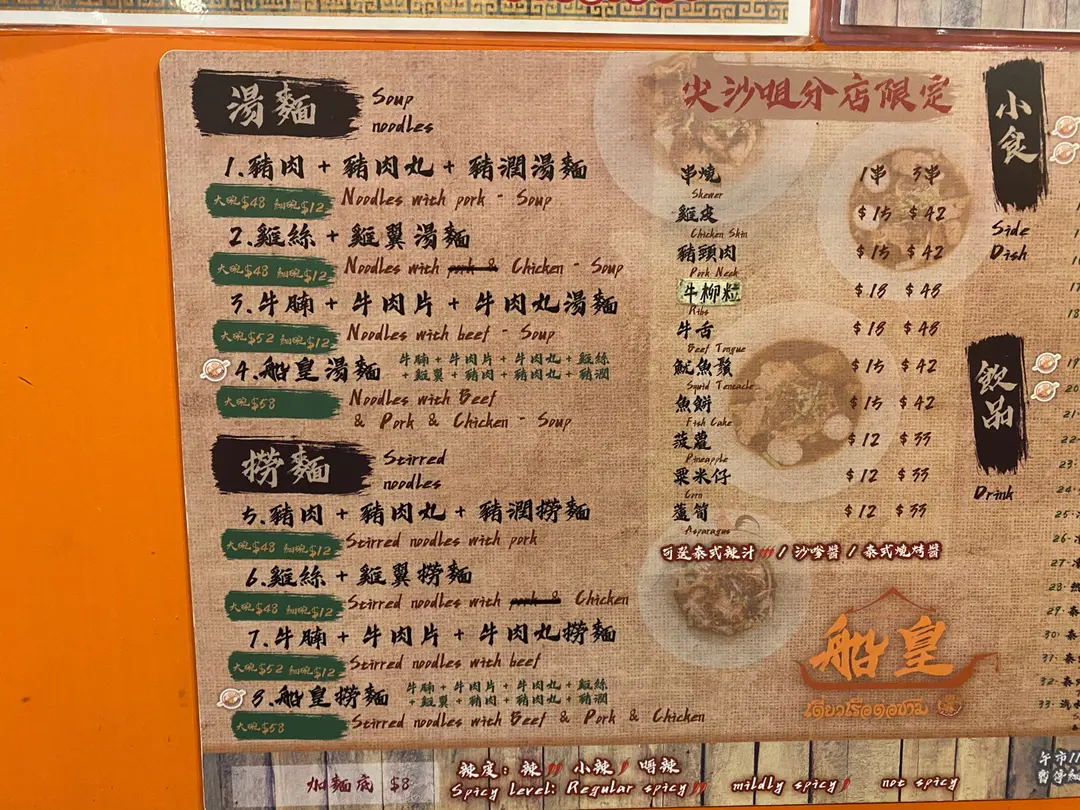 湯麵 Soup noodles
1.豬肉 + 豬肉丸 + 豬潤湯麵
大碗$48 細碗$12 Noodles with pork - Soup
2.雞絲 + 雞翼湯麵
大碗$48 細碗$12 Noodles with pork & Chicken - Soup
3.牛腩 + 牛肉片 + 牛肉丸湯麵
大碗$52 細碗$12 Noodles with beef - Soup
4.船皇湯麵 牛腩 + 牛肉片 + 牛肉丸 + 雞絲
+ 雞翼 + 豬肉 + 豬肉丸 + 豬潤
大碗$58 Noodles with Beef
& Pork & Chicken - Soup
撈麵 Stirred noodles
5.豬肉 + 豬肉丸 + 豬潤撈麵
大碗$48 細碗$12 Stirred noodles with pork
6.雞絲 + 雞翼撈麵
大碗$48 細碗$12 Stirred noodles with pork & Chicken
7.牛腩 + 牛肉片 + 牛肉丸撈麵
大碗$52 細碗$12 Stirred noodles with beef
8.船皇撈麵 牛腩 + 牛肉片 + 牛肉丸 + 雞絲
+ 雞翼 + 豬肉 + 豬肉丸 + 豬潤
大碗$58 Stirred noodles with Beef & Pork & Chicken
尖沙咀分店限定
串燒 1串 3串
Skewer
雞皮 $15 $42
Chicken Skin
豬頸肉 $15 $42
Pork Neck
牛柳粒 $18 $48
Ribs
牛舌 $18 $48
Beef Tongue
魷魚鬚 $15 $42
Squid Tencacle
魚餅 $15 $42
Fish Cake
菠蘿 $12 $33
Pineapple
粟米仔 $12 $33
Corn
蘆筍 $12 $33
Asparagus
可送泰式辣汁 / 沙嗲醬 / 泰式燒烤醬
船皇
小食
Side
Dish
飲品
Drink
19
20
21
22
23
24
25
26
27
28
29
30 泰
31 泰
32 泰
33
加麵底 $8
辣度: 辣 小辣 唔辣
Spicy Level: Regular spicy mildly spicy not spicy
午市11